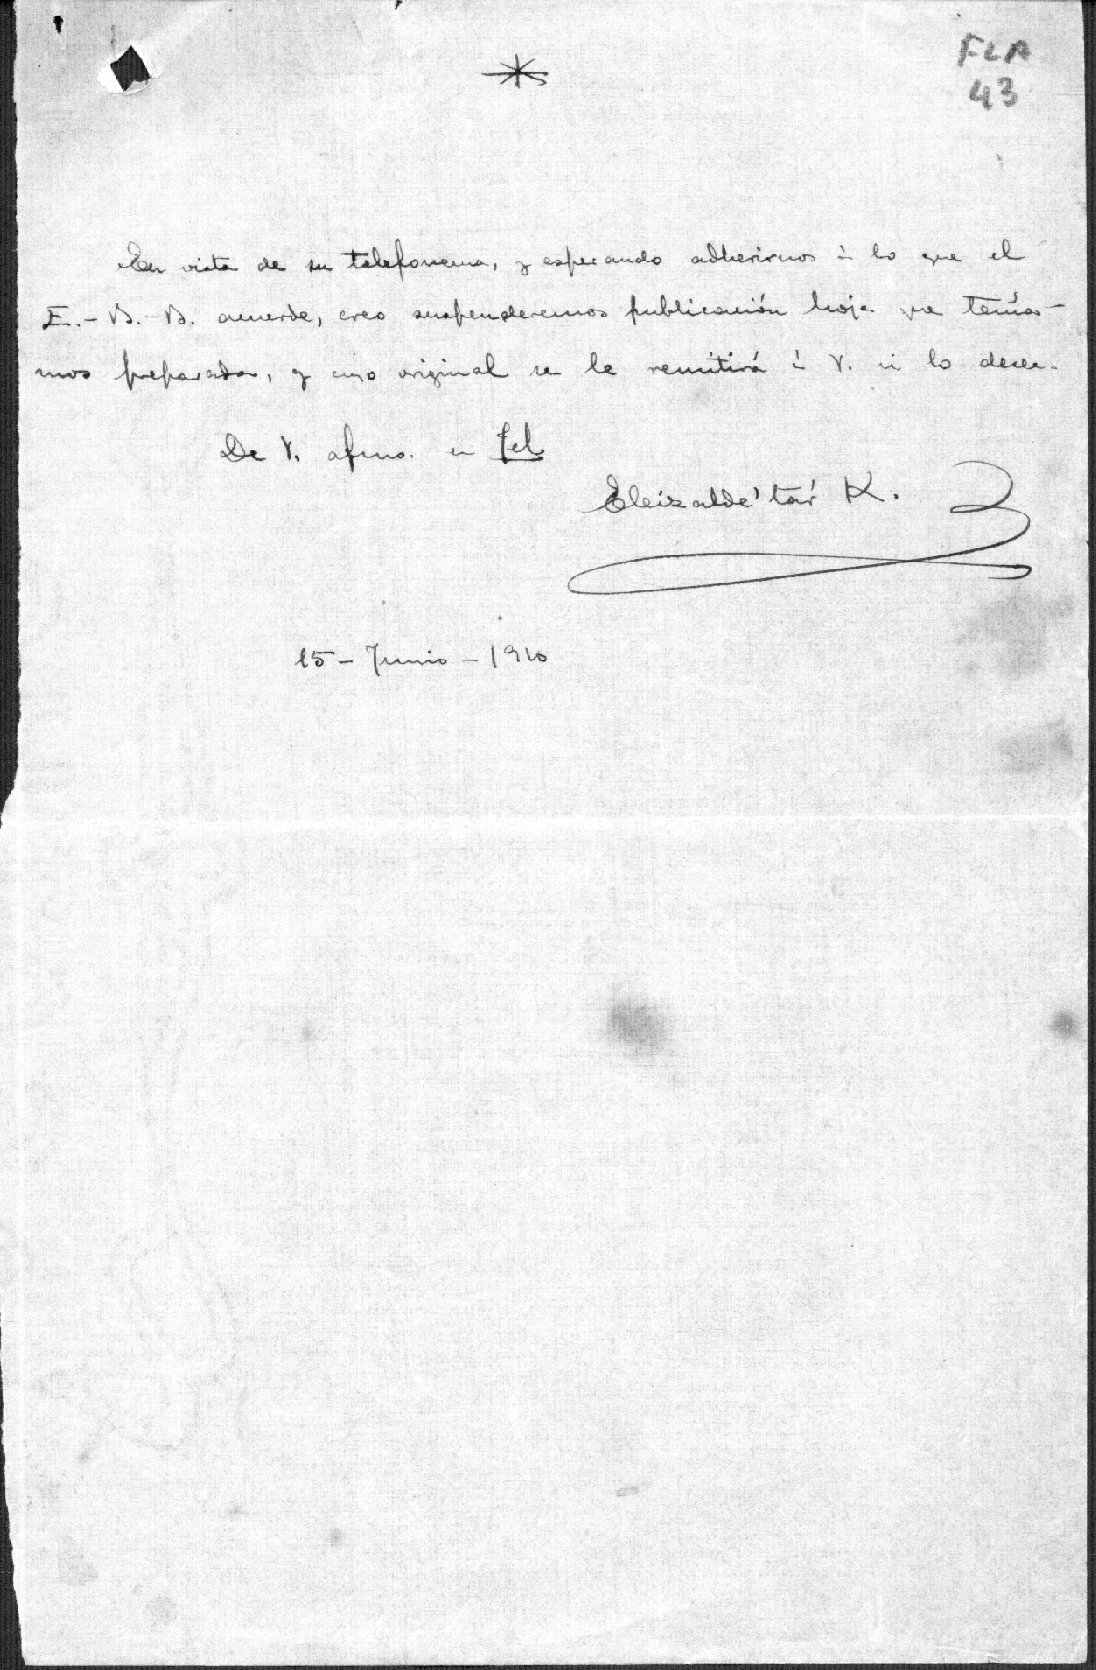 FLA
43
En vista de su telefonema, y esperando adherirnos á lo que el
E.-B.-B. acuerde, creo suspenderemos publicación hoja que tenía-
mos preparada, y cuyo original se le remitirá á V. si lo desea.
De V. afmo. en Jel
Eleizalde'tar K.
15 - Junio - 1910